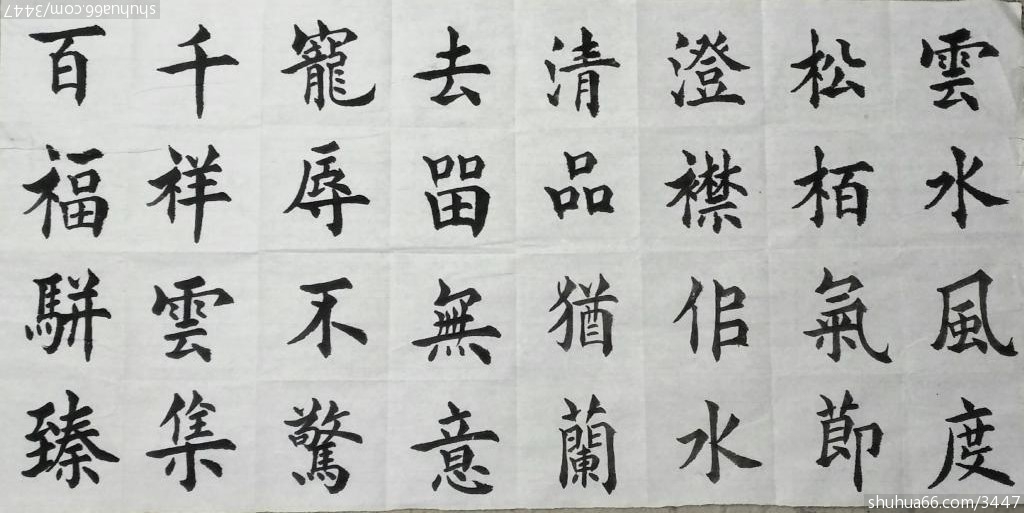 雲水風度
松栢氣莭
澄襟佀水
清品猶蘭
去㽞無意
寵辱不驚
千祥雲集
百福駢臻
shuhua66.com/3447
shuhua66.com/3447